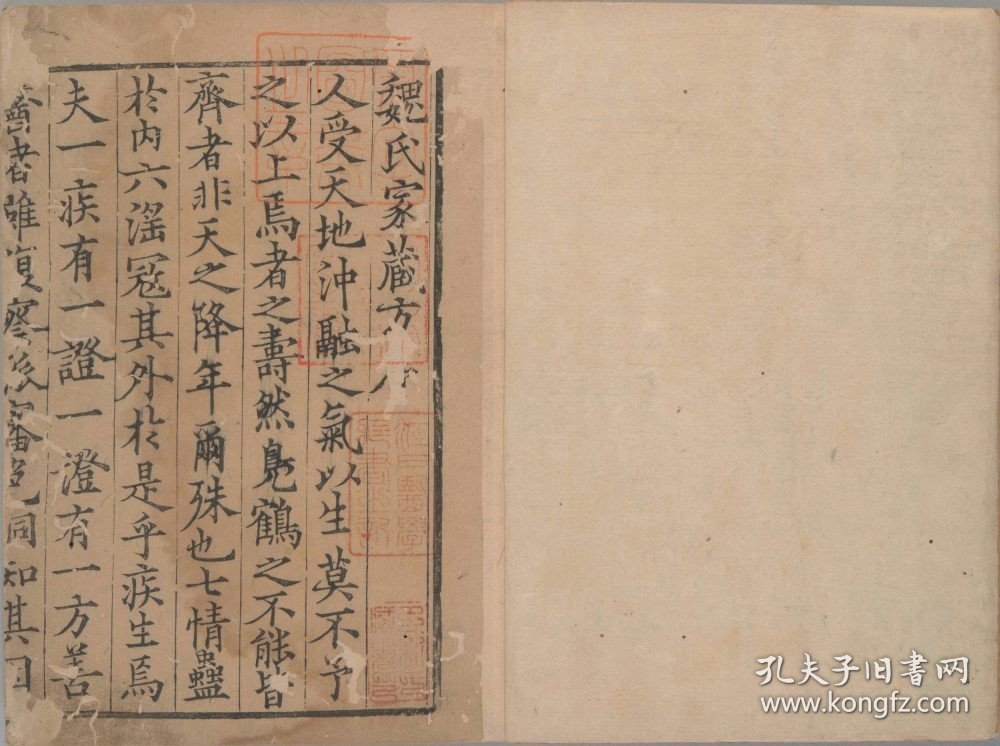 魏氏家藏方
人受天地沖融之氣以生莫不予
之以上焉者之壽然鳧鶴之不能皆
齊者非天之降年爾殊也七情蠱
於內六滛寇其外於是乎疾生焉
夫一疾有一證一澄有一方善
醫者雖
審 同知其因
孔夫子旧书网
www.kongfz.com